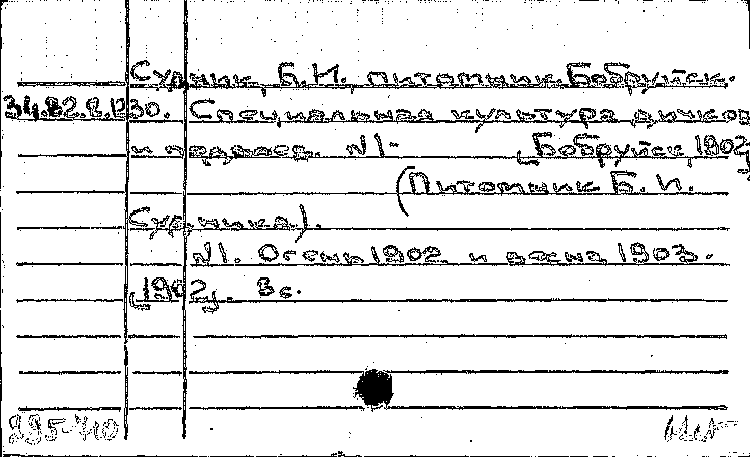 Судник, Б.И., питомник. Бобруйск.
34.82.8.1230. Специальная культура дичков
и подвоев. №1- [Бобруйск, 1902]
(Питомник Б. И.
Судника).
№1. Осень 1902 и весна 1903.
[1902]. 8с.
295-710